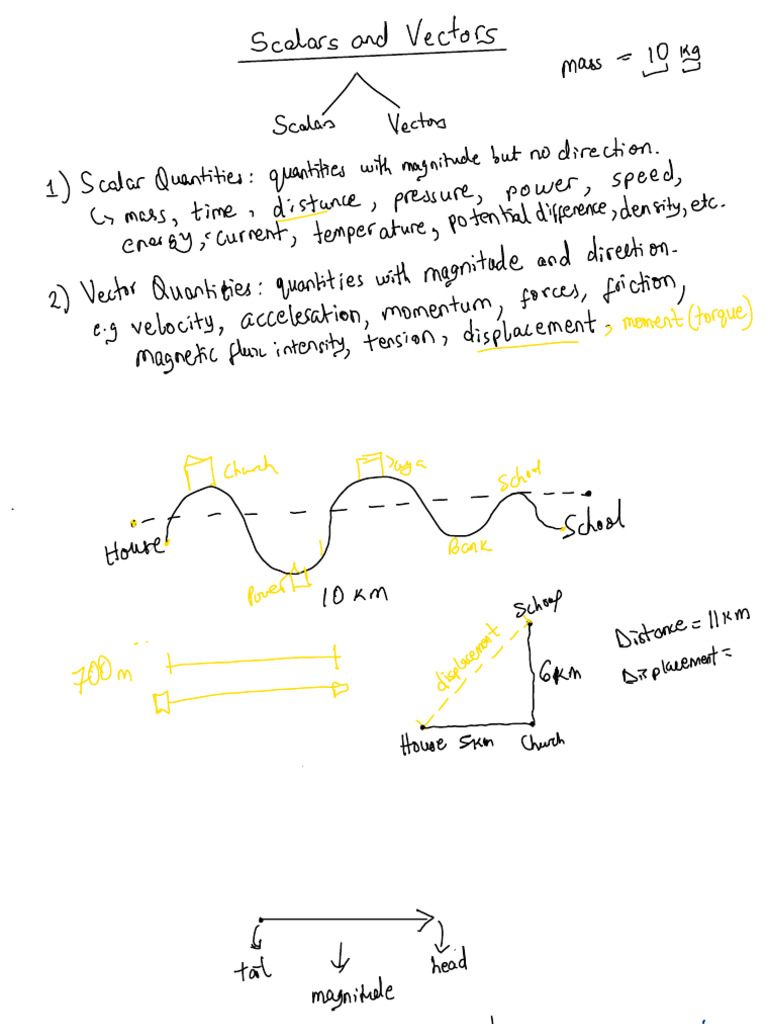 Scalars and Vectors
mass = 10 kg
Scalars Vectors
1) Scalar Quantities: quantities with magnitude but no direction.
↳ mass, time, distance, pressure, power, speed,
energy, current, temperature, potential difference, density, etc.
2) Vector Quantities: quantities with magnitude and direction.
e.g velocity, acceleration, momentum, forces, friction,
magnetic flux intensity, tension, displacement, moment (torque)
Church
School
House
School
Bank
Power
10 KM
700m
School
displacement
6KM
House 5KM Church
Distance = 11KM
Displacement =
tail
magnitude
head